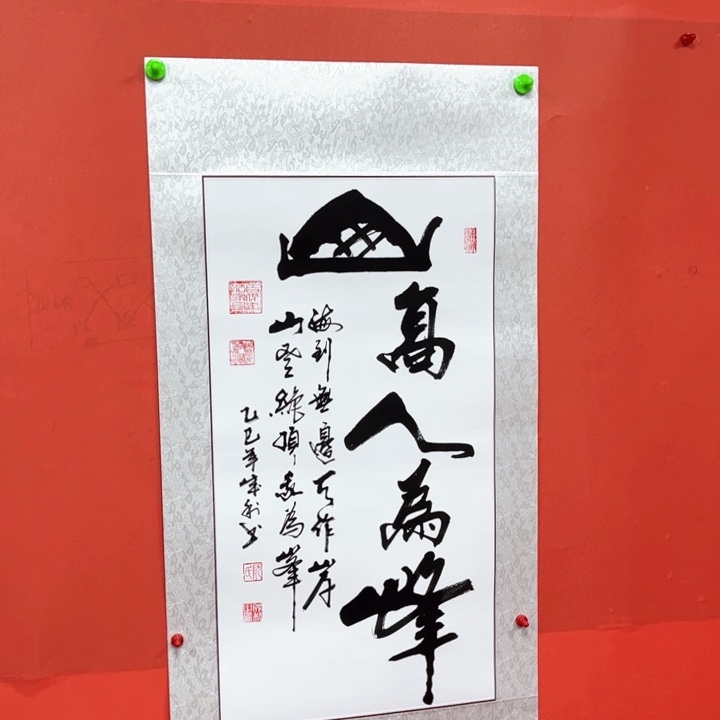 山高人為峰
海到無邊天作岸
山登絕頂我為峯
乙巳年